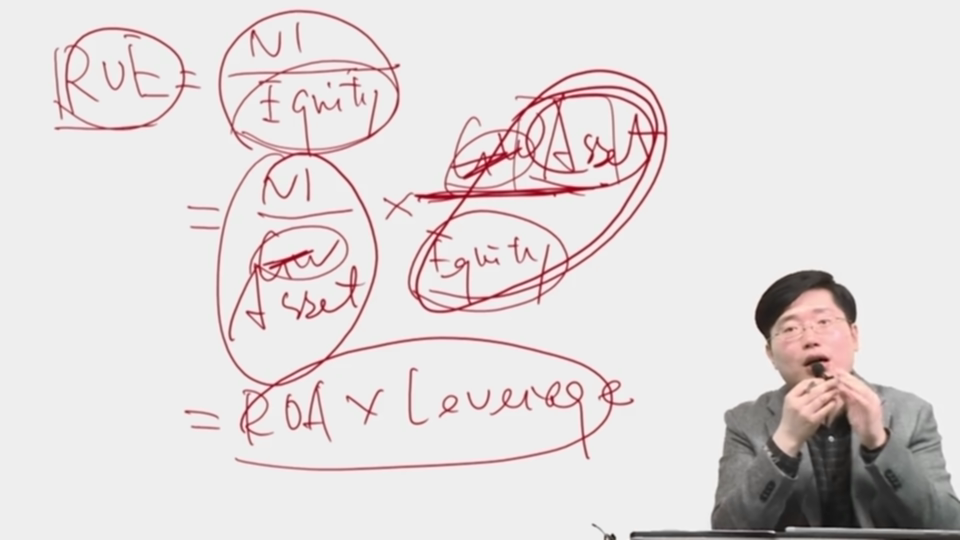 ROE = NI
Equity
= NI × Asset
Asset Equity
= ROA × Leverage